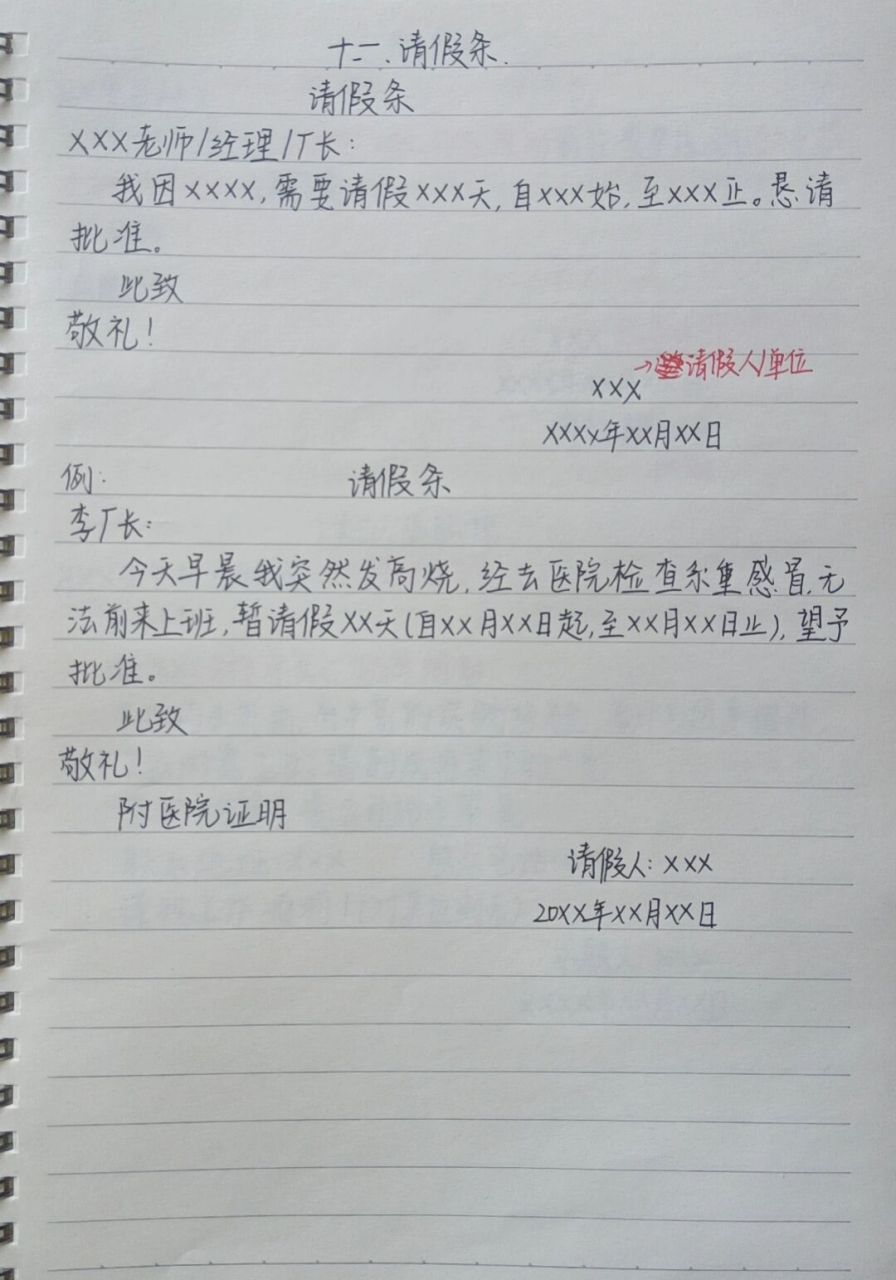 十一.请假条.
请假条
XXX老师/经理/厂长:
我因XXXX,需要请假XXX天,自XXX始,至XXX止。恳请
批准。
此致
敬礼!
→请假人/单位
XXX
XXXX年XX月XX日
例: 请假条
李厂长:
今天早晨我突然发高烧,经去医院检查系重感冒,无
法前来上班,暂请假XX天(自XX月XX日起,至XX月XX日止),望予
批准。
此致
敬礼!
附医院证明
请假人:XXX
20XX年XX月XX日